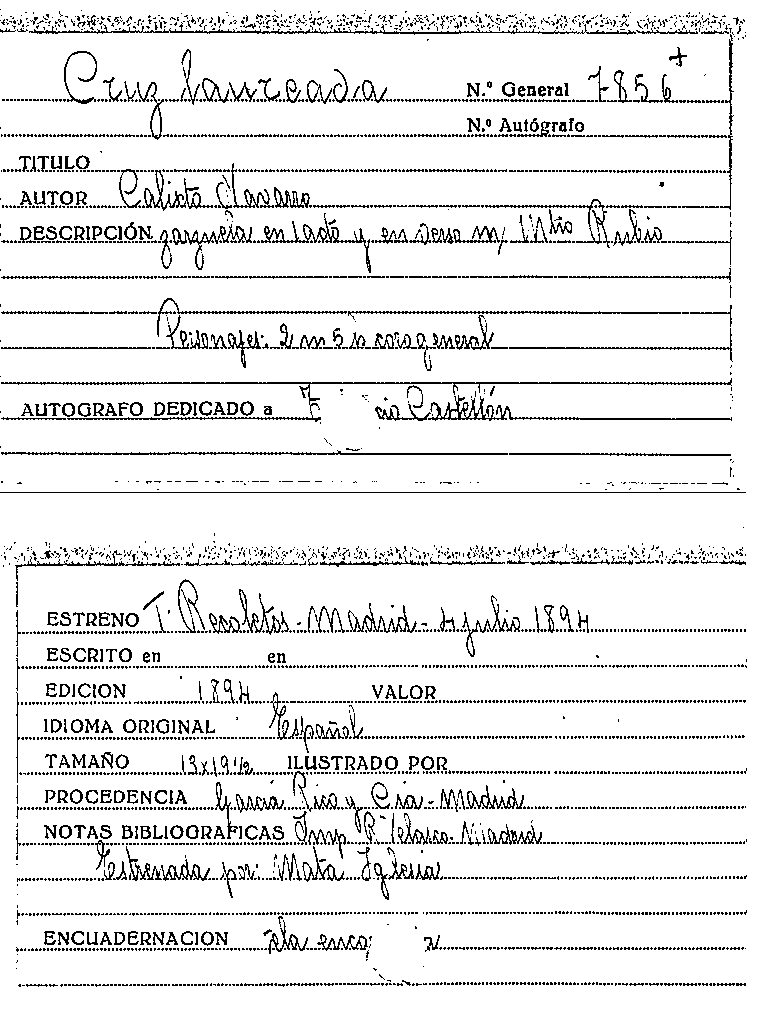 Cruz laureada N.º General 7856+
N.º Autógrafo
TITULO
AUTOR Calixto Navarro
DESCRIPCIÓN zarzuela en 1 acto y en verso m/ Mtro Rubio
Personajes: 2 m 5 h coro general
AUTOGRAFO DEDICADO a Castellón
ESTRENO T. Recoletos - Madrid - 4 julio 1894
ESCRITO en en
EDICION 1894 VALOR
IDIOMA ORIGINAL Español
TAMAÑO 13x19½ ILUSTRADO POR
PROCEDENCIA García Rico y Cía - Madrid
NOTAS BIBLIOGRAFICAS Imp R Velasco. Madrid
Estrenada por: Mata Iglesia
ENCUADERNACION